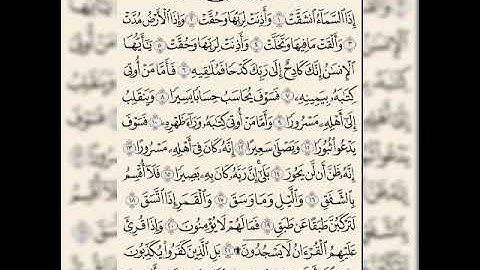 إِذَا السَّمَاءُ انشَقَّتْ ١ وَأَذِنَتْ لِرَبِّهَا وَحُقَّتْ ٢ وَإِذَا الْأَرْضُ مُدَّتْ
٣ وَأَلْقَتْ مَا فِيهَا وَتَخَلَّتْ ٤ وَأَذِنَتْ لِرَبِّهَا وَحُقَّتْ ٥ يَا أَيُّهَا
الْإِنسَانُ إِنَّكَ كَادِحٌ إِلَىٰ رَبِّكَ كَدْحًا فَمُلَاقِيهِ ٦ فَأَمَّا مَنْ أُوتِيَ
كِتَابَهُ بِيَمِينِهِ ٧ فَسَوْفَ يُحَاسَبُ حِسَابًا يَسِيرًا ٨ وَيَنقَلِبُ
إِلَىٰ أَهْلِهِ مَسْرُورًا ٩ وَأَمَّا مَنْ أُوتِيَ كِتَابَهُ وَرَاءَ ظَهْرِهِ ١٠ فَسَوْفَ
يَدْعُو ثُبُورًا ١١ وَيَصْلَىٰ سَعِيرًا ١٢ إِنَّهُ كَانَ فِي أَهْلِهِ مَسْرُورًا ١٣
إِنَّهُ ظَنَّ أَن لَّن يَحُورَ ١٤ بَلَىٰ إِنَّ رَبَّهُ كَانَ بِهِ بَصِيرًا ١٥ فَلَا أُقْسِمُ
بِالشَّفَقِ ١٦ وَاللَّيْلِ وَمَا وَسَقَ ١٧ وَالْقَمَرِ إِذَا اتَّسَقَ ١٨
لَتَرْكَبُنَّ طَبَقًا عَن طَبَقٍ ١٩ فَمَا لَهُمْ لَا يُؤْمِنُونَ ٢٠ وَإِذَا قُرِئَ
عَلَيْهِمُ الْقُرْآنُ لَا يَسْجُدُونَ ۩ ٢١ بَلِ الَّذِينَ كَفَرُوا يُكَذِّبُونَ